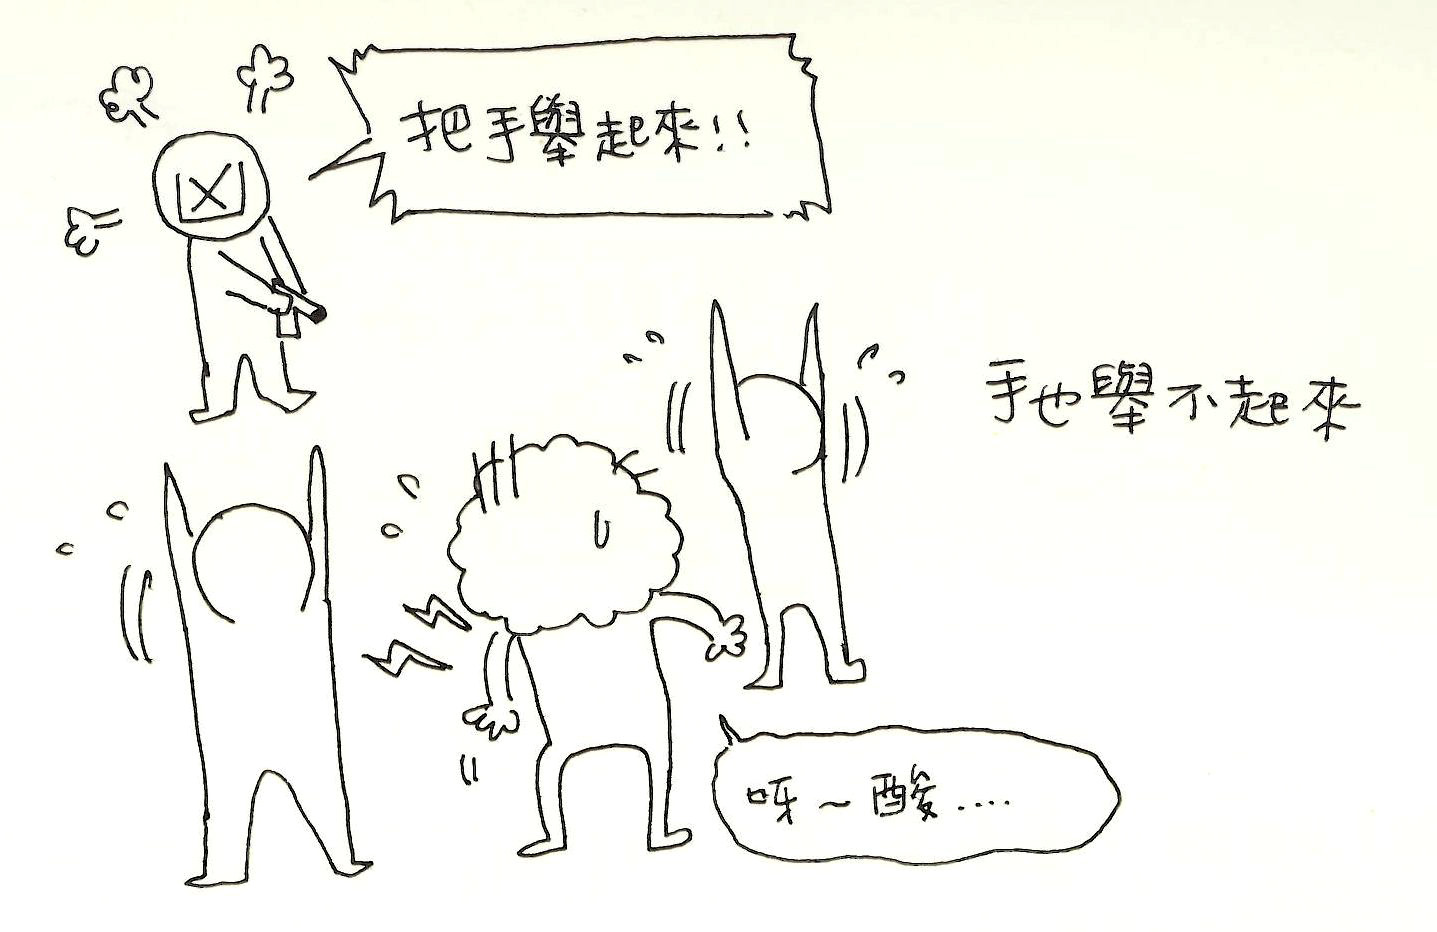 把手舉起來!!
手也舉不起來
呀~酸....